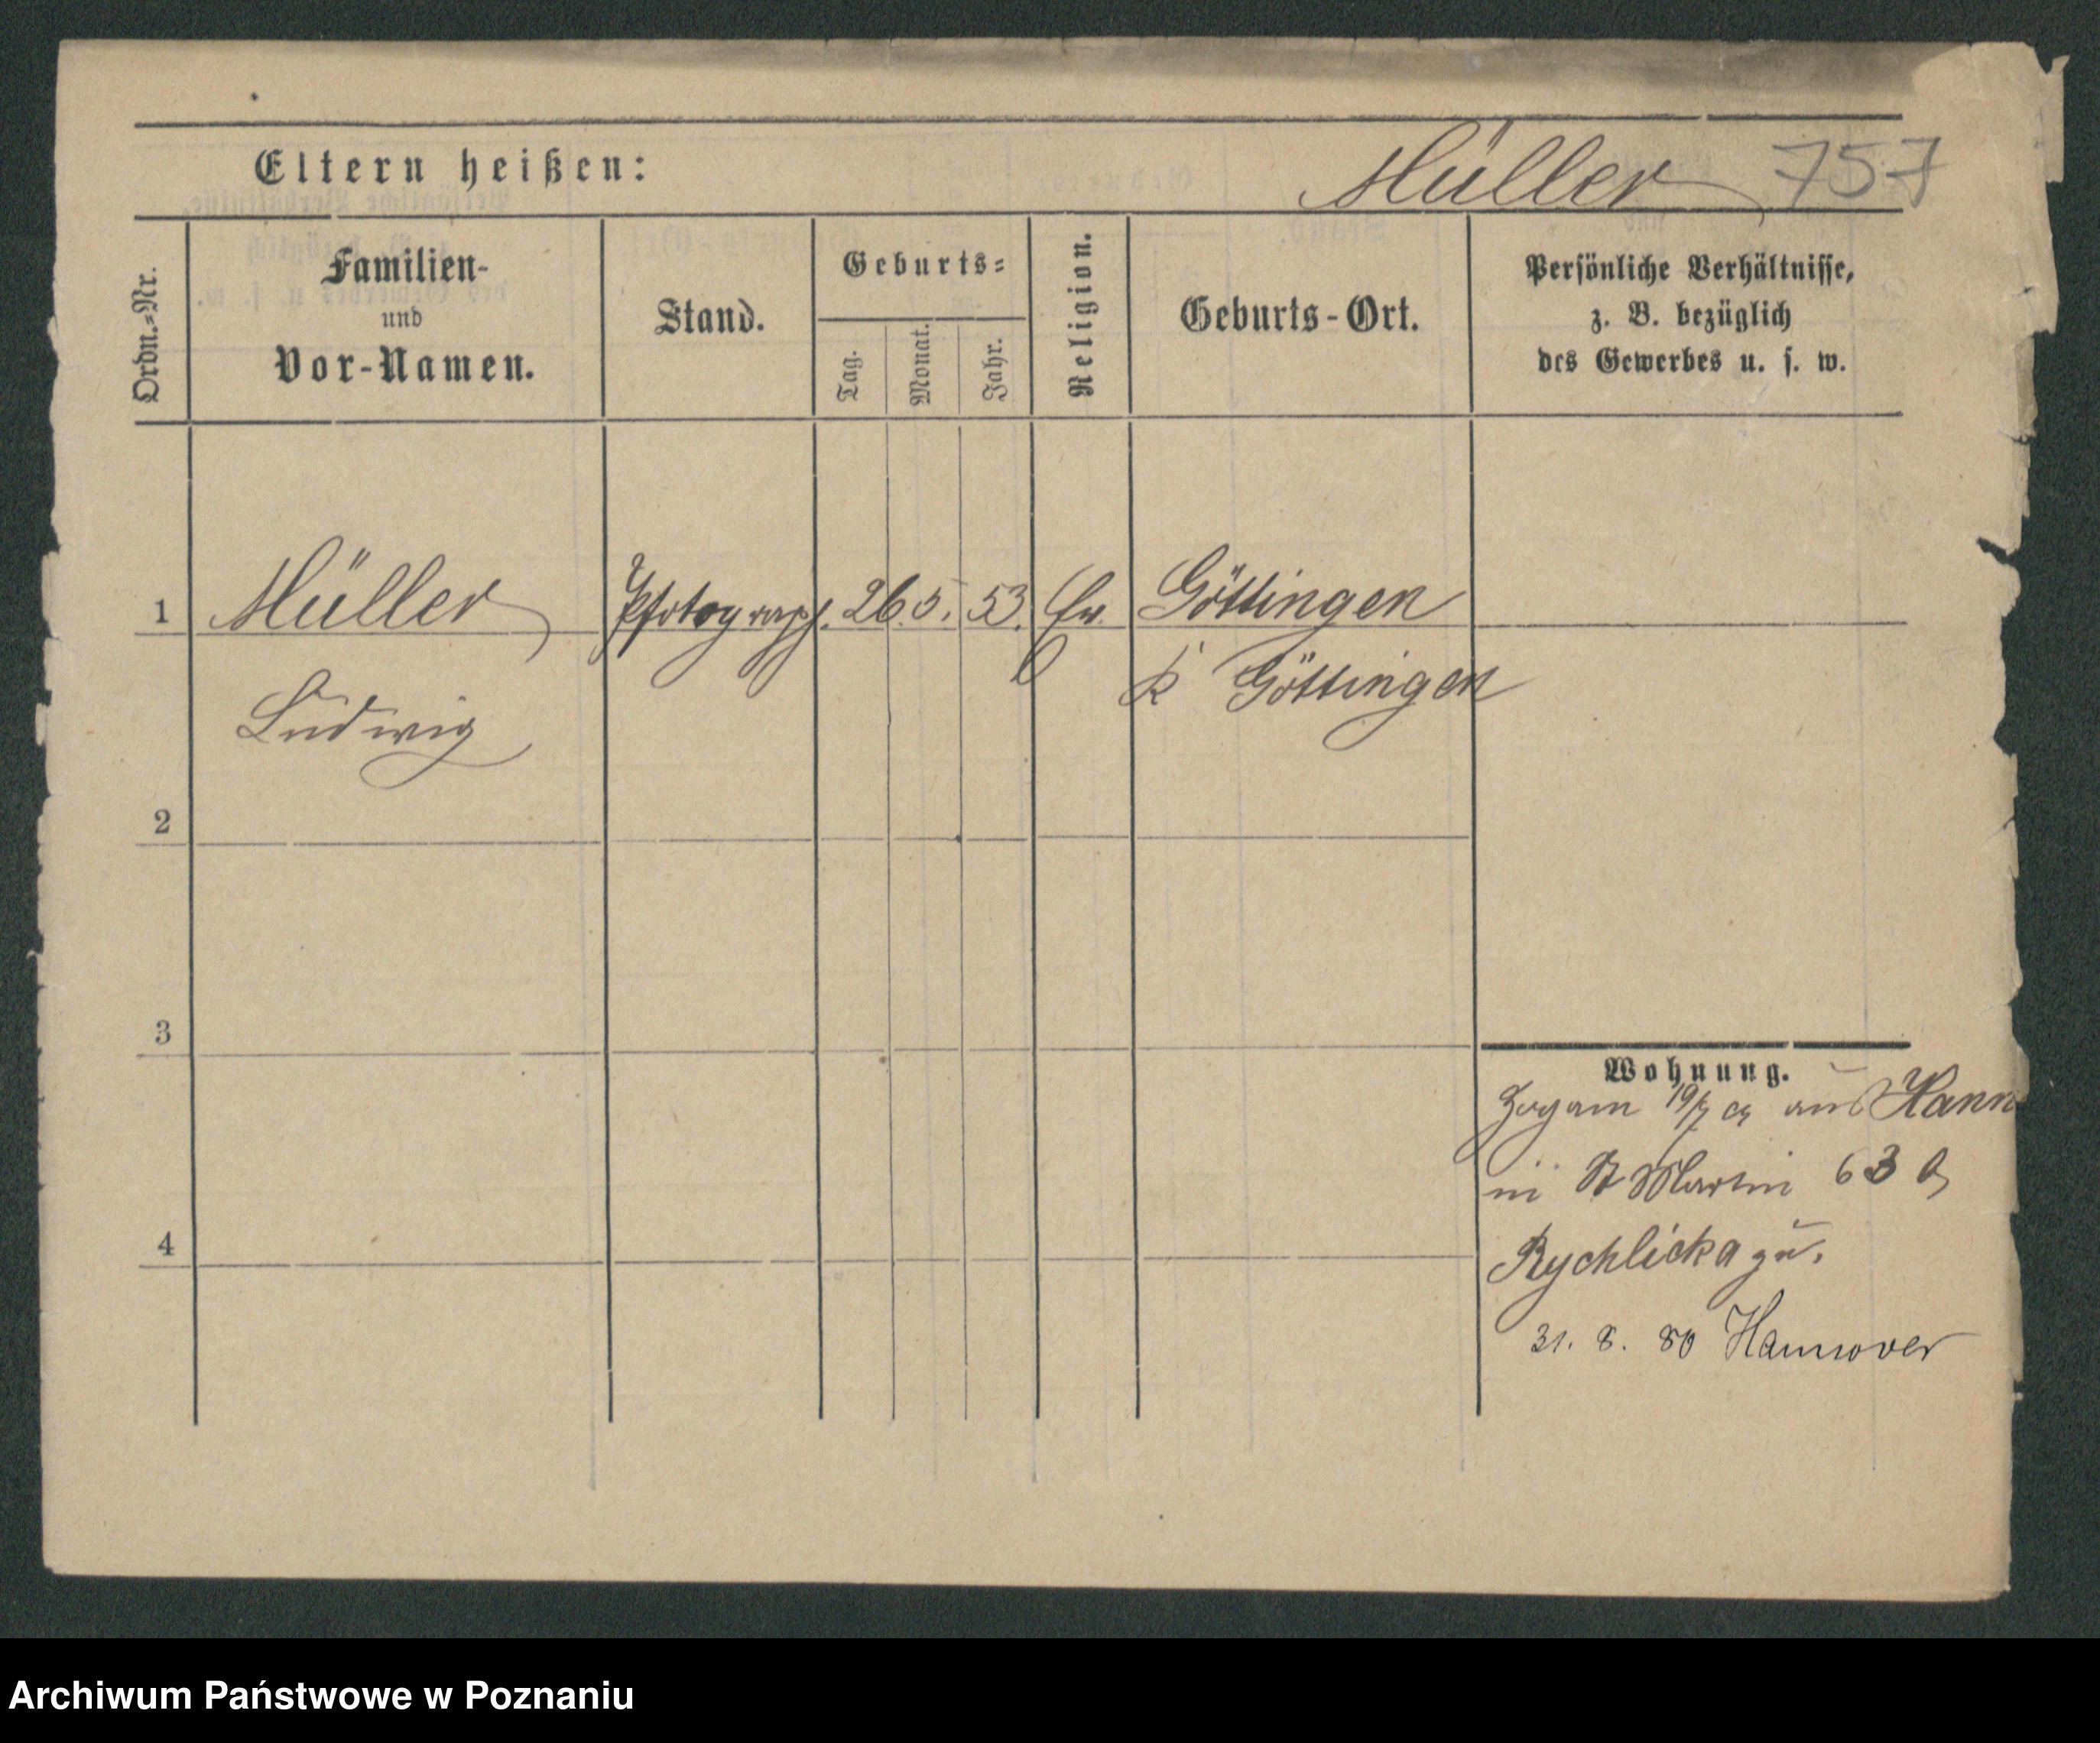 Eltern heißen:
Müller 757
Ordn.-Nr.
Familien-
und
Vor-Namen.
Stand.
Geburts-
Tag.
Monat.
Jahr.
Religion.
Geburts-Ort.
Persönliche Verhältnisse,
z. B. bezüglich
des Gewerbes u. s. w.
1 Müller Photograph. 26. 5. 53. Ev. Göttingen
Ludwig K Göttingen
2
3
4
Wohnung.
Zog am 19/7 cr aus Hann
in St Martin 63 b
Rychlicka zu.
31. 8. 80 Hannover
Archiwum Państwowe w Poznaniu